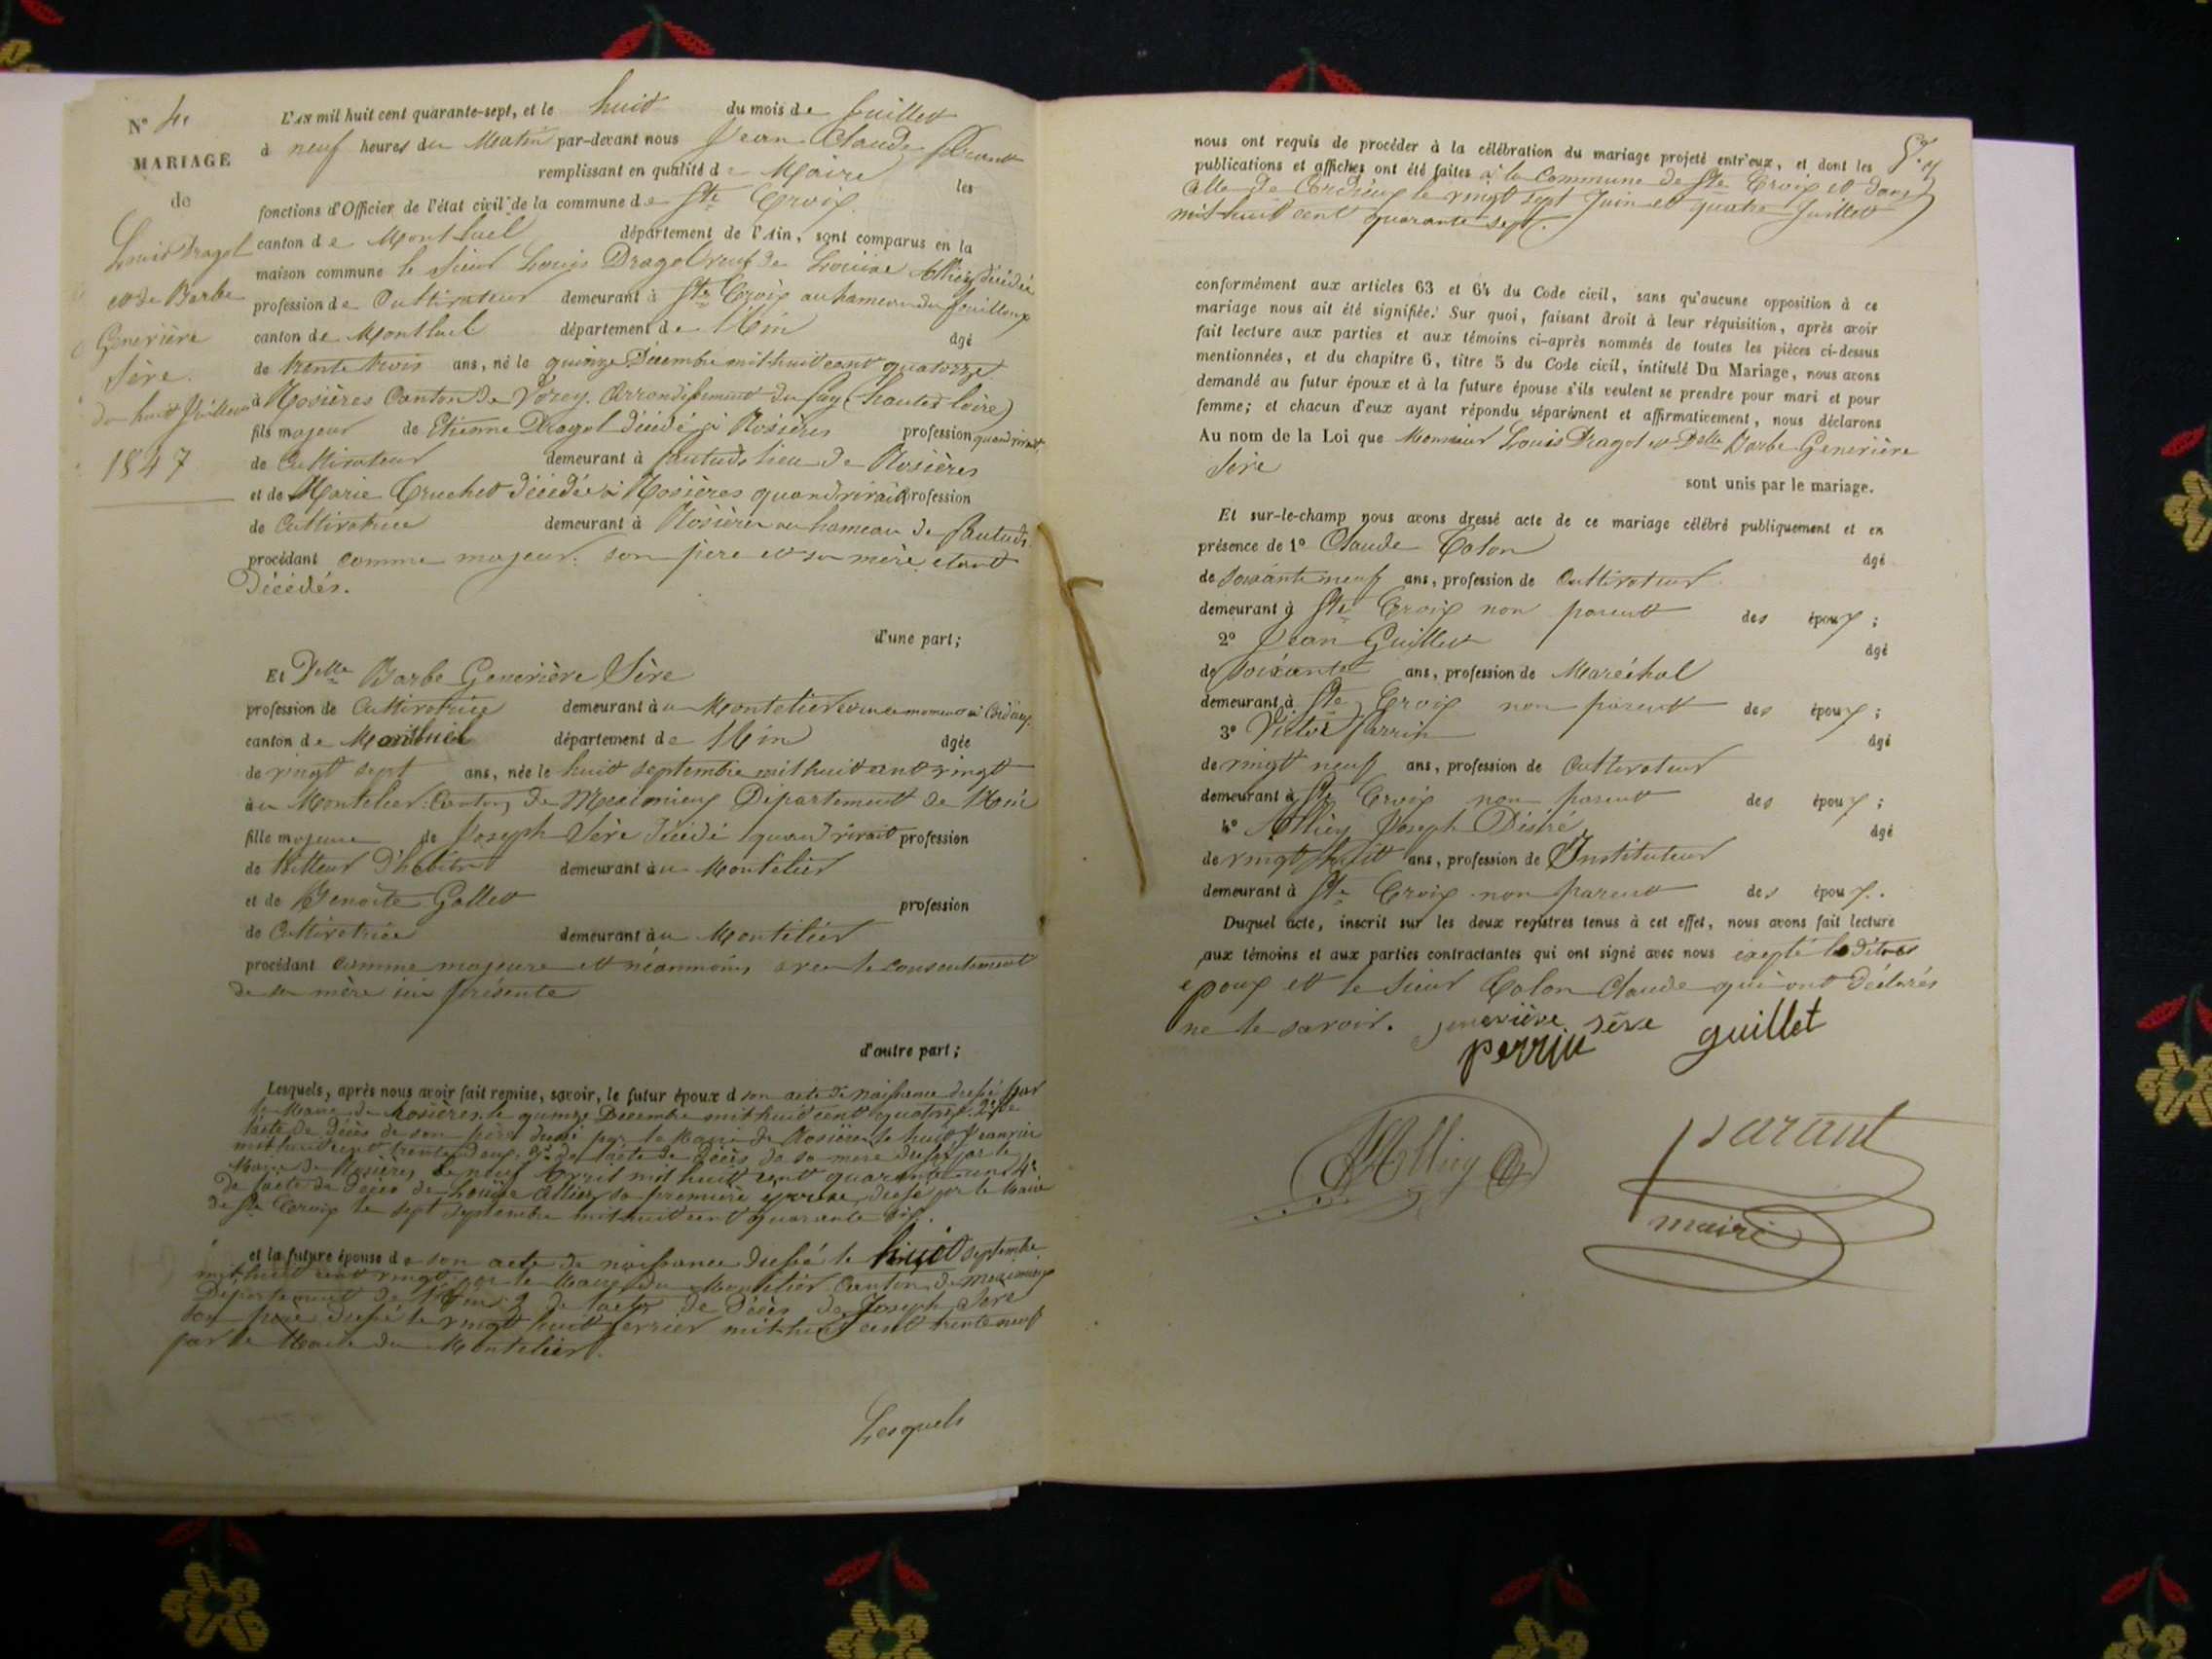 N° 4.
MARIAGE
de
Louis Dragol
et de Barbe
Geneviève
Sève.
du huit Juillet
1847
L'AN mil huit cent quarante-sept, et le huit du mois de Juillet
à neuf heures du Matin par-devant nous Jean Claude Parant
remplissant en qualité de Maire les
fonctions d'Officier de l'état civil de la commune de Ste Croix.
canton de Montluel département de l'Ain, sont comparus en la
maison commune le sieur Louis Dragol veuf de Louise Alliey décédée
profession de Cultivateur demeurant à Ste Croix au hameau du fouilloux
canton de Montluel département de l'Ain âgé
de trente trois ans, né le quinze Décembre mil huit cent quatorze
à Rosières Canton de Vorey. Arrondissement du Puy (haute loire)
fils majeur de Etienne Dragol décédé à Rosières profession quand vivait,
de Cultivateur demeurant à lieu de Rosières
et de Marie Cruchet décédée à Rosières quand vivait profession
de Cultivatrice demeurant à Rosières au hameau de
procédant comme majeur. son père et sa mère étant
Décédés.
d'une part;
Et Delle Barbe Geneviève Sève
profession de Cultivatrice demeurant au Montelier et en ce moment à Cordieux.
canton de Montluel département de l'Ain âgée
de vingt sept ans, née le huit septembre mil huit cent vingt
au Montelier. Canton de Meximieux Département de l'Ain
fille majeure de Joseph Sève décédé quand vivait profession
de demeurant au Montelier
et de Benoite Gallet profession
de Cultivatrice demeurant au Montelier
procédant comme majeure et néanmoins avec le consentement
de sa mère ici présente
d'autre part;
Lesquels, après nous avoir fait remise, savoir, le futur époux d son acte de naissance dressé par
le Maire de Rosières le quinze Decembre mil huit cent quatorze. 2° de
l'acte de décès de son père dressé par le Maire de Rosières le huit Janvier
mil huit cent trente deux. 3° de l'acte de décès de sa mere dressé par le
Maire de Rosières le neuf Avril mil huit cent quarante un 4°
de l'acte de décès de Louise Alliey sa première épouse dressé par le Maire
de Ste Croix le sept septembre mil huit cent quarante six.
et la future épouse de son acte de naissance dressé le huit septembre
mil huit cent vingt par le Maire du Montelier Canton de Meximieux
Département de l'Ain 2 de l'acte de décès de Joseph Sève
son père dressé le vingt huit fevrier mil huit cent trente neuf
par le Maire du Montelier.
Lesquels
nous ont requis de procéder à la célébration du mariage projeté entr'eux, et dont les
publications et affiches ont été faites à la Commune de Ste Croix et dans
celle de Cordieux le vingt sept Juin et quatre Juillet
mil huit cent quarante sept.
conformément aux articles 63 et 64 du Code civil, sans qu'aucune opposition à ce
mariage nous ait été signifiée. Sur quoi, faisant droit à leur réquisition, après avoir
fait lecture aux parties et aux témoins ci-après nommés de toutes les pièces ci-dessus
mentionnées, et du chapitre 6, titre 5 du Code civil, intitulé Du Mariage, nous avons
demandé au futur époux et à la future épouse s'ils veulent se prendre pour mari et pour
femme; et chacun d'eux ayant répondu séparément et affirmativement, nous déclarons
Au nom de la Loi que Monsieur Louis Dragol et Delle Barbe Geneviève
Sève
sont unis par le mariage.
Et sur-le-champ nous avons dressé acte de ce mariage célébré publiquement et en
présence de 1° Claude Colon
âgé
de soixante neuf ans, profession de Cultivateur
demeurant à Ste Croix non parent des époux;
2° Jean Guillet
âgé
de soixante ans, profession de Maréchal
demeurant à Ste Croix non parent des époux;
3° Victor Perrin
âgé
de vingt neuf ans, profession de Cultivateur
demeurant à Ste Croix non parent des époux;
4° Alliey Joseph Désiré
âgé
de vingt huit ans, profession de Instituteur
demeurant à Ste Croix non parent des époux.
Duquel acte, inscrit sur les deux registres tenus à cet effet, nous avons fait lecture
aux témoins et aux parties contractantes qui ont signé avec nous excepté
époux et le sieur Colon Claude qui ont déclarés
ne le savoir. geneviève sève guillet
perrin
Alliey
parant
maire